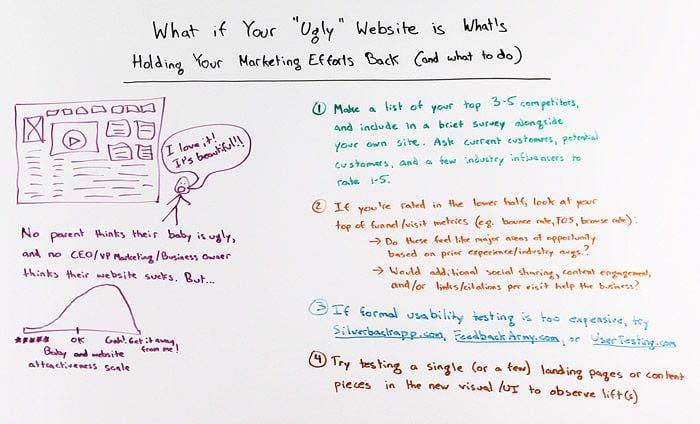 What if Your "Ugly" Website is What's
Holding Your Marketing Efforts Back (and what to do)
I love it!
It's beautiful!!
No parent thinks their baby is ugly,
and no CEO/VP Marketing/Business owner
thinks their website sucks. But...
★★★★★ OK Gah! Get it away
from me!
Baby and website
attractiveness scale
1 Make a list of your top 3-5 competitors,
and include in a brief survey alongside
your own site. Ask current customers, potential
customers, and a few industry influencers to
rate 1-5.
2 If you're rated in the lower half, look at your
top of funnel/visit metrics (e.g. bounce rate, TOS, browse rate):
→ Do these feel like major areas of opportunity
based on prior experience/industry avgs.?
→ Would additional social sharing, content engagement,
and/or links/citations per visit help the business?
3 If formal usability testing is too expensive, try
Silverbackapp.com, FeedbackArmy.com, or UserTesting.com
4 Try testing a single (or a few) landing pages or content
pieces in the new visual/UI to observe lift(s)